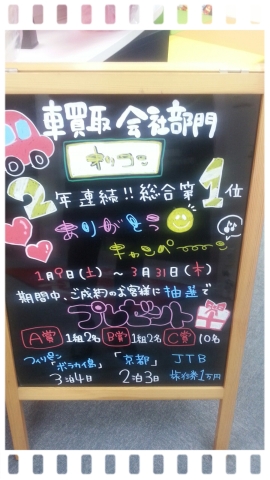 車買取 会社部門
オリコン
2年連続!!総合第1位
ありがとう
キャンペーーン
1月9日(土)〜3月31日(木)
期間中、ご成約のお客様に抽選で
プレゼント
A賞 1組2名 B賞 1組2名 C賞 10名
フィリピン 「京都」 JTB
「ボラカイ島」 2泊3日 旅行券1万円
3泊4日